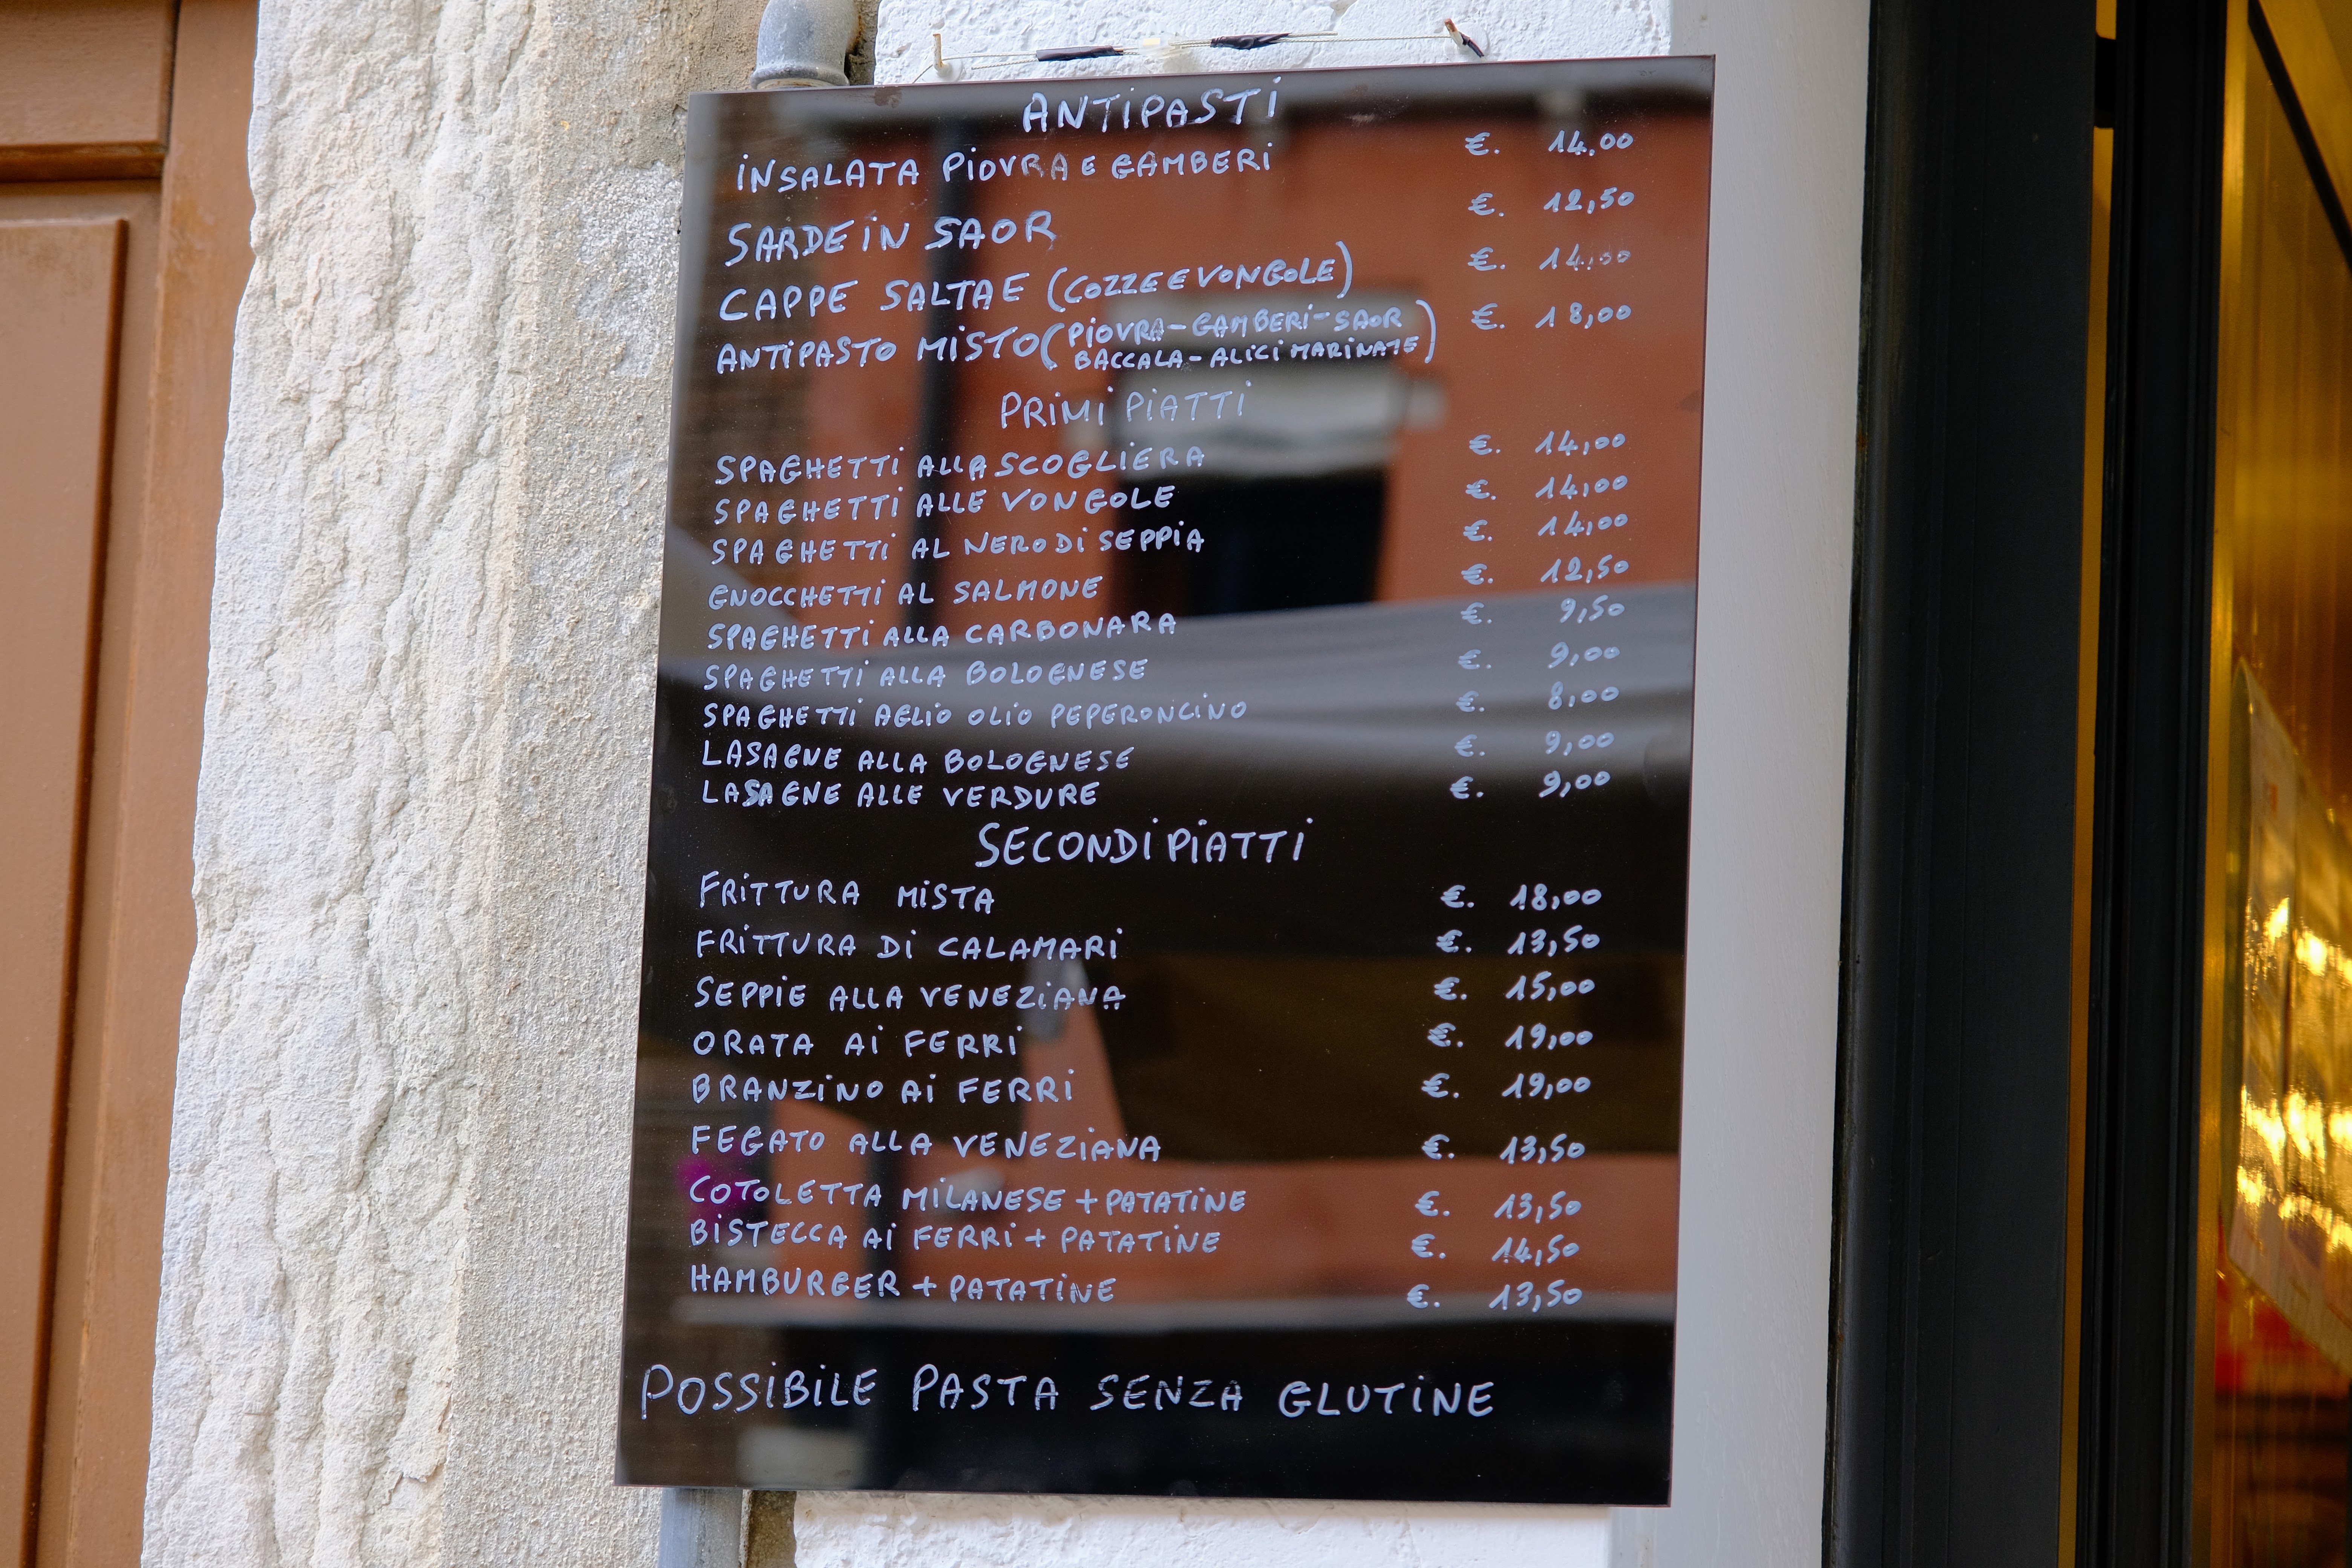 ANTIPASTI
INSALATA PIOVRA E GAMBERI €. 14,00
SARDE IN SAOR €. 12,50
CAPPE SALTAE (COZZE E VONGOLE) €. 14,00
ANTIPASTO MISTO (PIOVRA-GAMBERI-SAOR €. 18,00
BACCALA-ALICI MARINATE)
PRIMI PIATTI
SPAGHETTI ALLA SCOGLIERA €. 14,00
SPAGHETTI ALLE VONGOLE €. 14,00
SPAGHETTI AL NERO DI SEPPIA €. 14,00
GNOCCHETTI AL SALMONE €. 12,50
SPAGHETTI ALLA CARBONARA €. 9,50
SPAGHETTI ALLA BOLOGNESE €. 9,00
SPAGHETTI AGLIO OLIO PEPERONCINO €. 8,00
LASAGNE ALLA BOLOGNESE €. 9,00
LASAGNE ALLE VERDURE €. 9,00
SECONDI PIATTI
FRITTURA MISTA €. 18,00
FRITTURA DI CALAMARI €. 13,50
SEPPIE ALLA VENEZIANA €. 15,00
ORATA AI FERRI €. 19,00
BRANZINO AI FERRI €. 19,00
FEGATO ALLA VENEZIANA €. 13,50
COTOLETTA MILANESE + PATATINE €. 13,50
BISTECCA AI FERRI + PATATINE €. 14,50
HAMBURGER + PATATINE €. 13,50
POSSIBILE PASTA SENZA GLUTINE